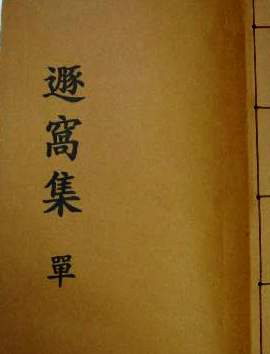 遯窩集 單